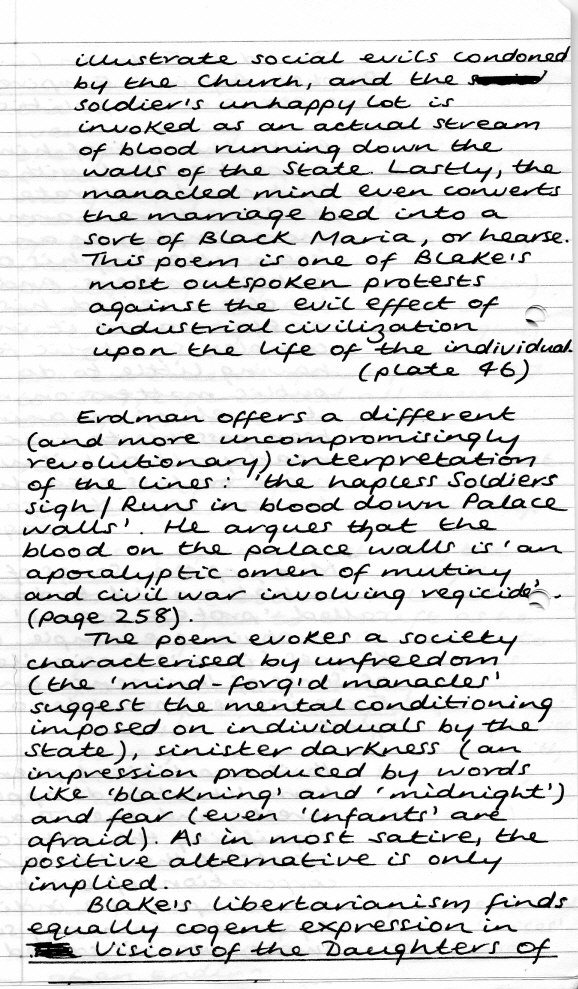 illustrate social evils condoned
by the Church, and the
soldier's unhappy lot is
invoked as an actual stream
of blood running down the
walls of the State. Lastly, the
manacled mind even converts
the marriage bed into a
sort of Black Maria, or hearse.
This poem is one of Blake's
most outspoken protests
against the evil effect of
industrial civilization
upon the life of the individual.
(plate 46)
Erdman offers a different
(and more uncompromisingly
revolutionary) interpretation
of the lines: 'the hapless Soldiers
sigh / Runs in blood down Palace
walls'. He argues that the
blood on the palace walls is 'an
apocalyptic omen of mutiny
and civil war involving regicide'.
(page 258).
The poem evokes a society
characterised by unfreedom
(the 'mind-forg'd manacles'
suggest the mental conditioning
imposed on individuals by the
State), sinister darkness (an
impression produced by words
like 'blackning' and 'midnight')
and fear (even 'Infants' are
afraid). As in most satire, the
positive alternative is only
implied.
Blake's libertarianism finds
equally cogent expression in
Visions of the Daughters of